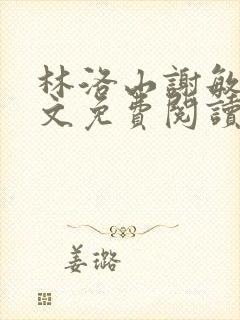 林洛山謝敏
文免費閱讀
姜璐